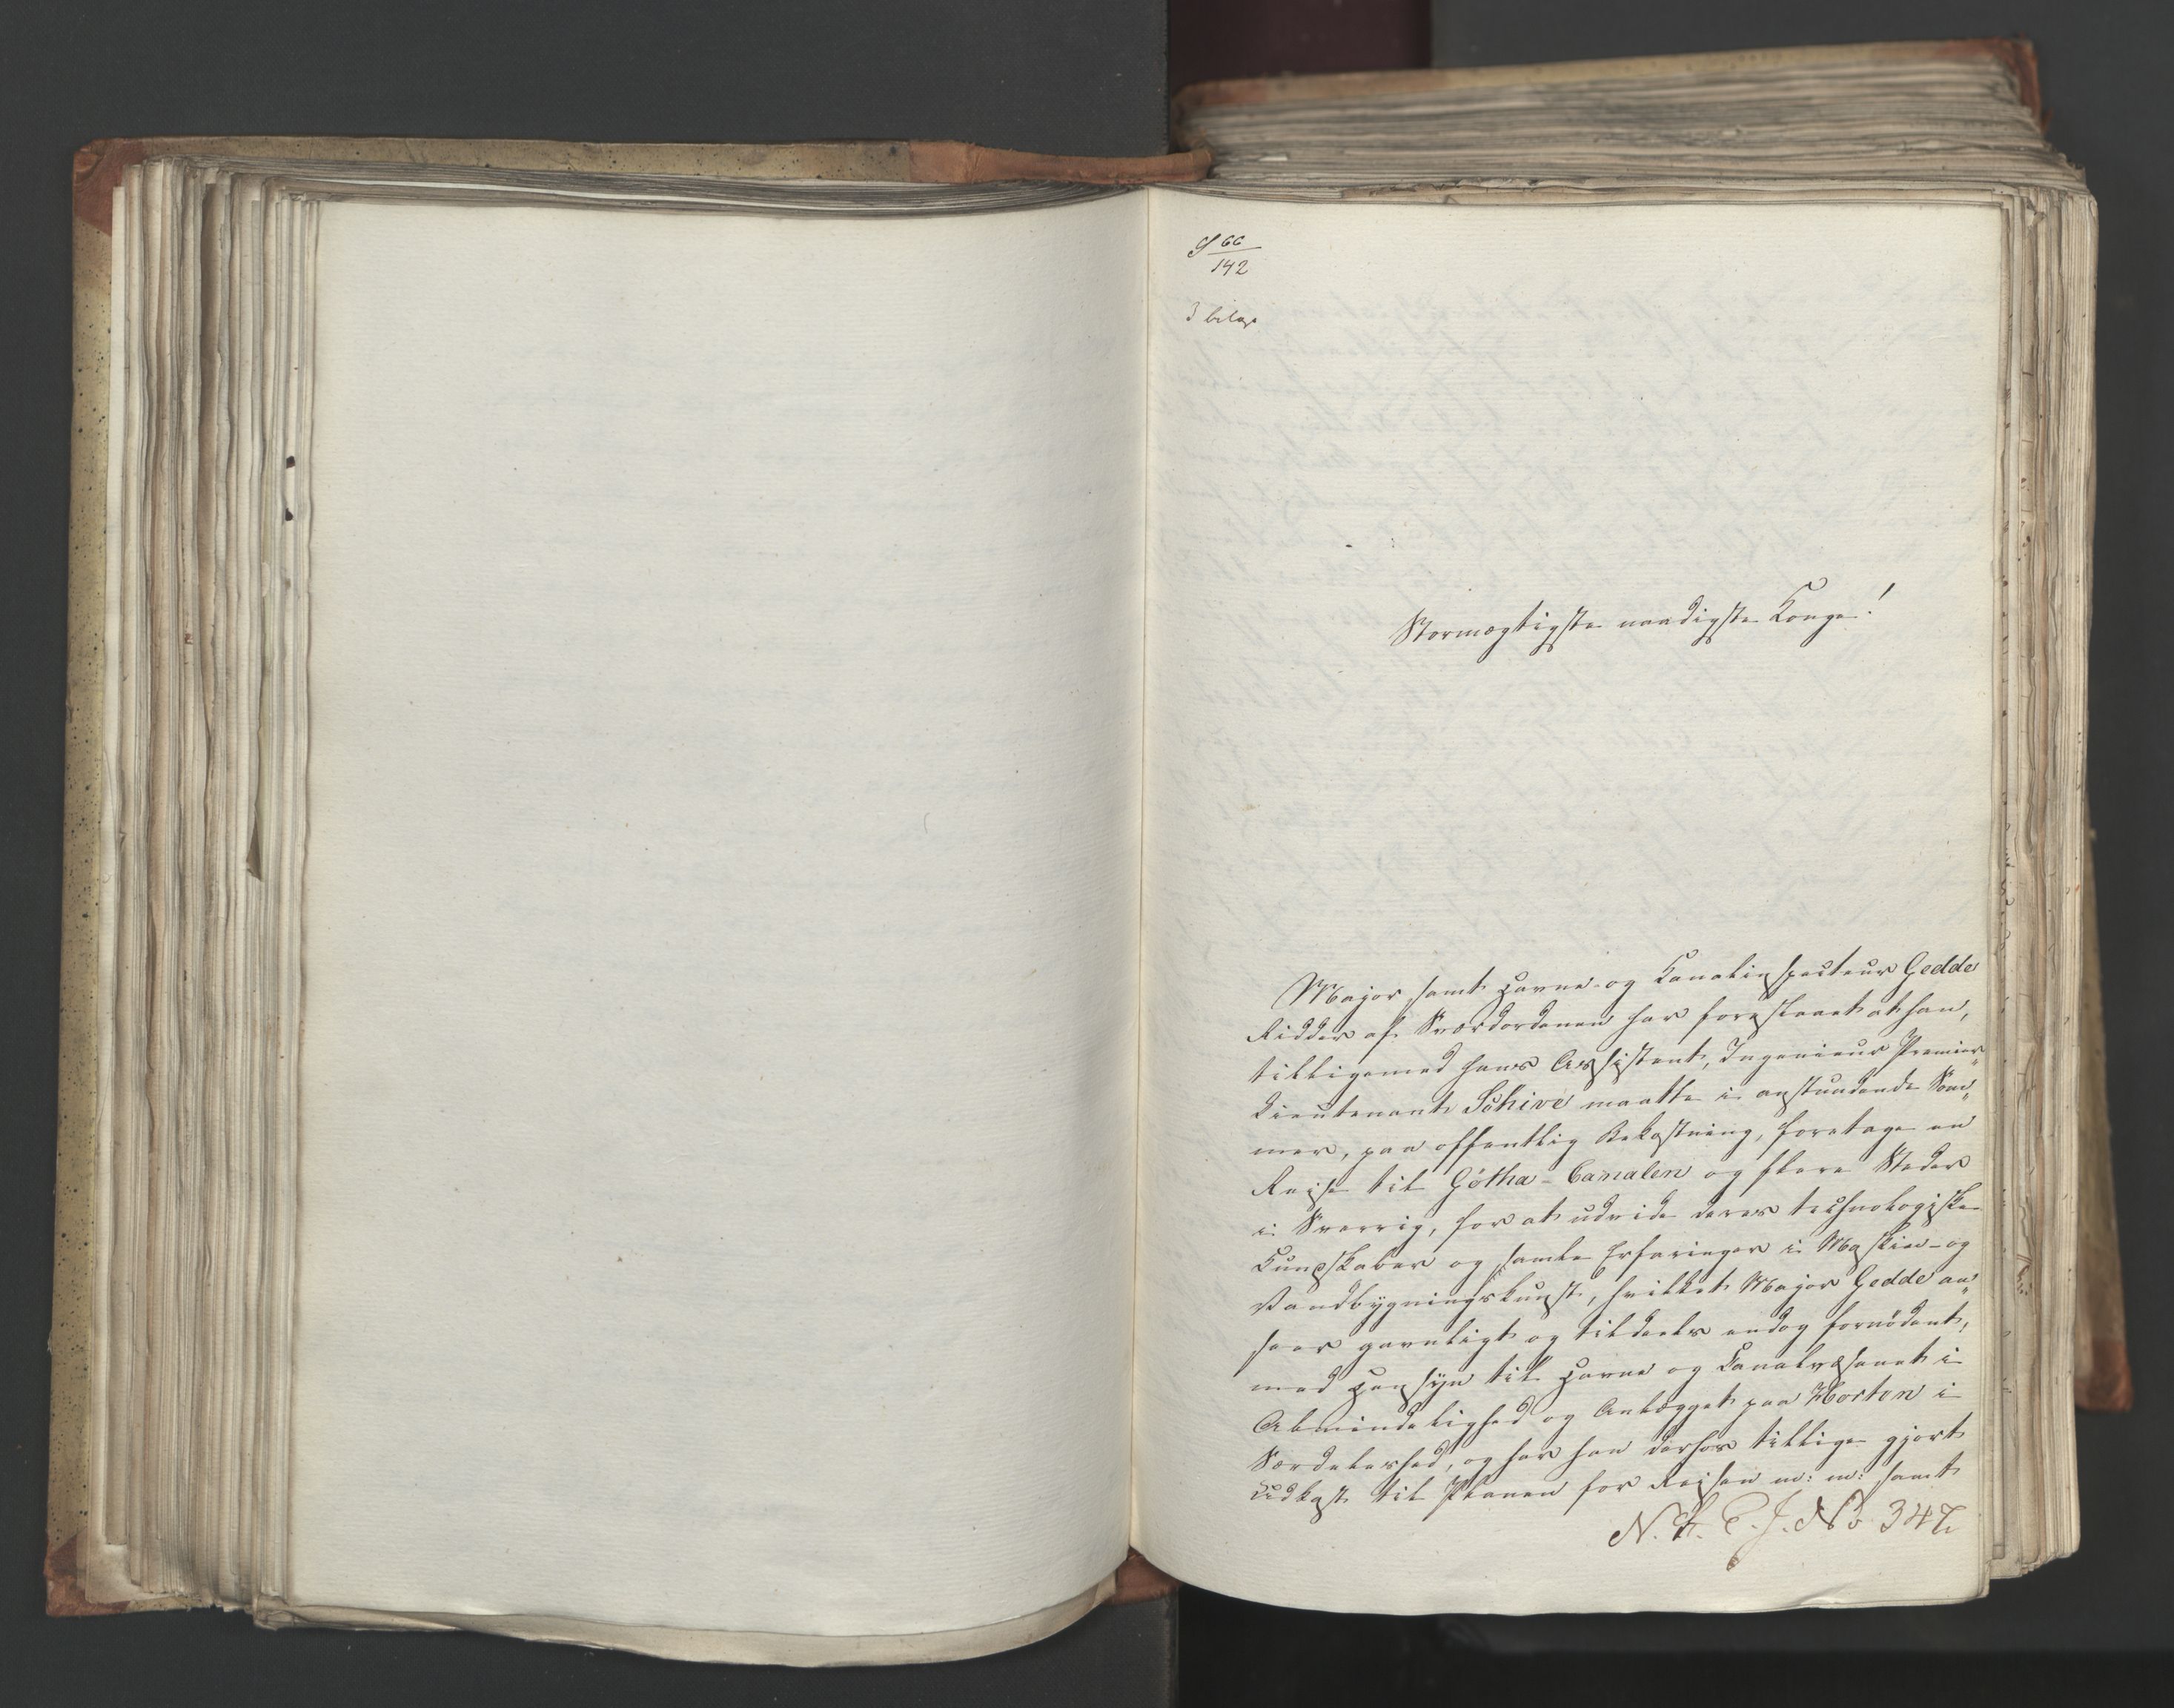 S 66
142
3 bilag
Stormægtigste naadigste Konge!
Major samt Havne- og Kanalinspecteur Gedde
Ridder af Sværdordenen har foreslaaet at han,
tilligemed hans Assistent, Ingenieur Premier„
Lieutenant Schive maatte i anstundende Som„
mer, paa offentlig Bekostning, foretage en
Reise til Götha-Canalen og flere Steder
i Sverrig, for at udvide deres technologiske
Kundskaber og samle Erfaringer i Maskin- og
Vandbygningskunst, hvilket Major Gedde an„
seer gavnligt og tildeels endog fornödent,
med Hensyn til Havne og Canalvæsenet i
Almindelighed og Anlægget paa Horten i
Særdeleshed, og har han derhos tillige gjort
Udkast til Planen for Reisen m: m: samt
N. F. C. J. No 347